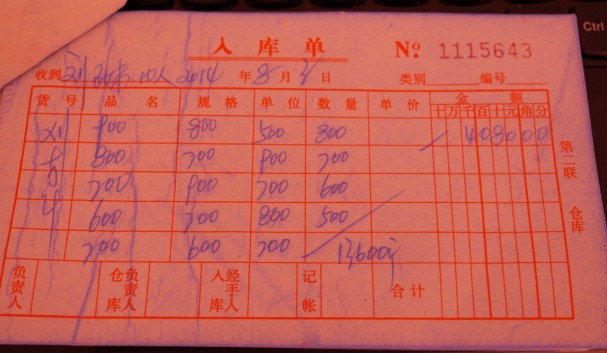 入库单 № 1115643
收到 刘 10人 2014 年 8 月 日 类别 编号
货号 品名 规格 单位 数量 单价 金额
十万千百十元角分
900 800 500 800
800 700 900 700
700 900 700 600
600 700 800 500
700 600 700 13600
负责人 仓库负责人 入库经手人 记帐 合计
第二联 仓库
Ctrl